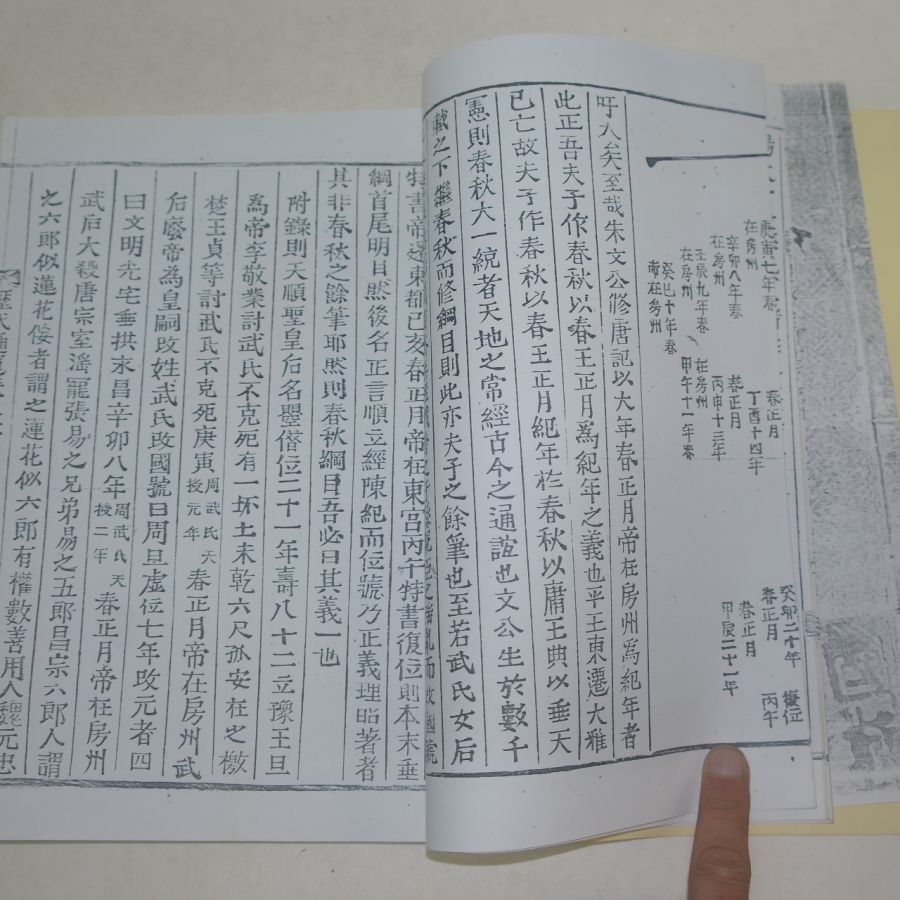 庚寅七年春
在房州
辛卯八年春
在房州
壬辰九年春
在房州
癸巳十年春
帝在房州
春正月
丁酉十四年
春正月
丙申十三年
在房州
甲午十一年春
癸卯二十年
春正月
春正月
甲辰二十一年
復位
丙午
吁久矣至哉朱文公修唐記以大年春正月帝在房州為紀年者
此正吾夫子作春秋以春王正月為紀年之義也平王東遷大雅
已亡故夫子作春秋以春王正月紀年於春秋以庸王典以垂天
憲則春秋大一統者天地之常經古今之通誼也文公生於數千
載之下繼春秋而修綱目則此亦夫子之餘筆也至若武氏女后
特書帝還東都己亥春正月帝在東宮丙午特書復位則本末垂
綱首尾明目然後名正言順立經陳紀而位號乃正義理昭著者
其非春秋之餘筆耶然則春秋綱目吾必曰其義一也
附錄則天順聖皇后名曌僭位二十一年壽八十二立豫王旦
為帝李敬業討武氏不克死有一坏土未乾六尺孤安在之檄
楚王貞等討武氏不克死庚寅周武氏天授元年春正月帝在房州武
后廢帝為皇嗣改姓武氏改國號曰周旦虛位七年改元者四
曰文明光宅垂拱永昌辛卯八年周武氏天授二年春正月帝在房州
武后大殺唐宗室滛寵張易之兄弟易之五郎昌宗六郎人謂
之六郎似蓮花倿者謂之蓮花似六郎有權數善用人